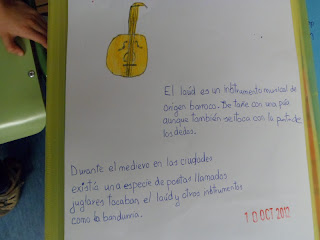 El laúd es un instrumento musical de
origen barroco. Se tañe con una púa
aunque también se toca con la punta de
los dedos.
Durante el medievo en las ciudades
existía una especie de poetas llamados
juglares tocaban el laúd y otros instrumentos
como la bandurria.
10 OCT 2012